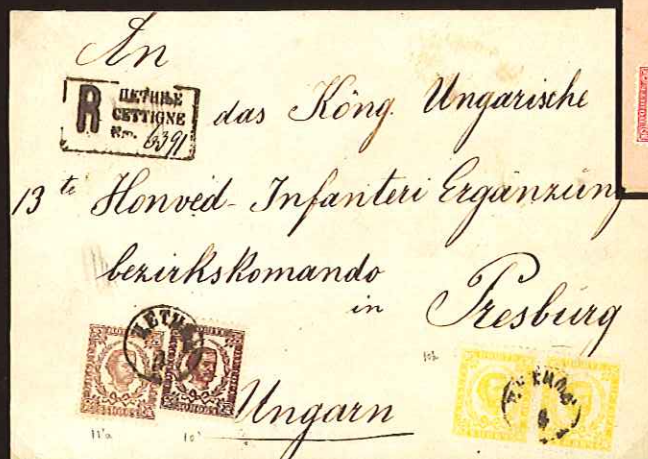 An
R ЦЕТИЊЕ
CETTIGNE
Nro. 6391
das Köng. Ungarische
13 te Honvéd-Infanteri Ergänzung
bezirkskomando
in Presburg
Ungarn